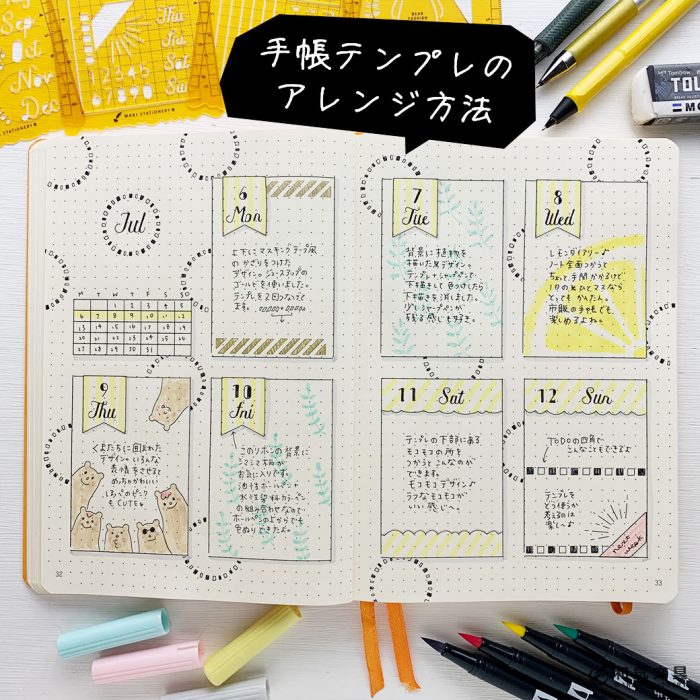 手帳テンプレの
アレンジ方法
Sep
Oct
Nov
Dec
Thu
Fri
Sat
Sun
WAKY STATIONERY
Tombow
MONO
Jul
M T W T F S S
1 2 3 4 5
6 7 8 9 10 11 12
13 14 15 16 17 18 19
20 21 22 23 24 25 26
27 28 29 30 31
6
Mon
上下にマスキングテープ風
のかざりをつけた
デザイン。ジュースアップの
ゴールドを使いました。
テンプレを2回つなげて
ます。
7
Tue
背景に植物を
描いた夏デザイン。
テンプレ+シャーペンで
下描きして色つけしたら
下描きを消しました。
少しシャープペンが
残る感じもすき。
8
Wed
レモンダイアリー♪
ノート全面つかうと
ちょっと手間かかるけど
1日のひとマスなら
とってもかんたん。
市販の手帳でも
楽しめるよね。
9
Thu
くまたちに囲まれた
デザイン。いろんな
表情をさせると
めちゃかわいい
ほっぺのピンク
もCUTE
10
Fri
このリボンの背景に
シマシマ模様が
お気に入りです。
油性ボールペン+
水性染料カラーペン
の組み合わせなので
ボールペンの上からでも
色ぬりできたよ。
11 Sat
テンプレの下部にある
モコモコの所を
つかうとこんなのが
できます。
モコモコデザイン♪
ラフなモコモコが
いい感じへ。
12 Sun
TODOの四角で
こんなこともできるよ
テンプレを
どう使うか
考えるのは
楽しいよ
next
week
32
33